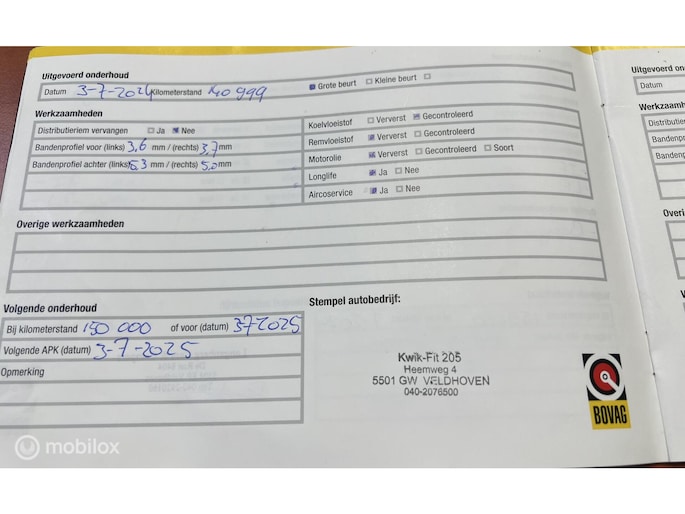 Uitgevoerd onderhoud
Datum 3-7-2024 Kilometerstand 140 999 Grote beurt Kleine beurt
Werkzaamheden
Distributieriem vervangen Ja Nee
Bandenprofiel voor (links) 3,6 mm / (rechts) 3,7 mm
Bandenprofiel achter (links) 5,3 mm / (rechts) 5,0 mm
Koelvloeistof Ververst Gecontroleerd
Remvloeistof Ververst Gecontroleerd
Motorolie Ververst Gecontroleerd Soort
Longlife Ja Nee
Aircoservice Ja Nee
Overige werkzaamheden
Volgende onderhoud
Bij kilometerstand 150 000 of voor (datum) 3-7-2025
Volgende APK (datum) 3-7-2025
Opmerking
Stempel autobedrijf:
Kwik-Fit 205
Heemweg 4
5501 GW VELDHOVEN
040-2076500
BOVAG
Uitgevoerd on
Datum
Werkzaamh
Distributierie
Bandenprofie
Bandenprofie
Overi
mobilox